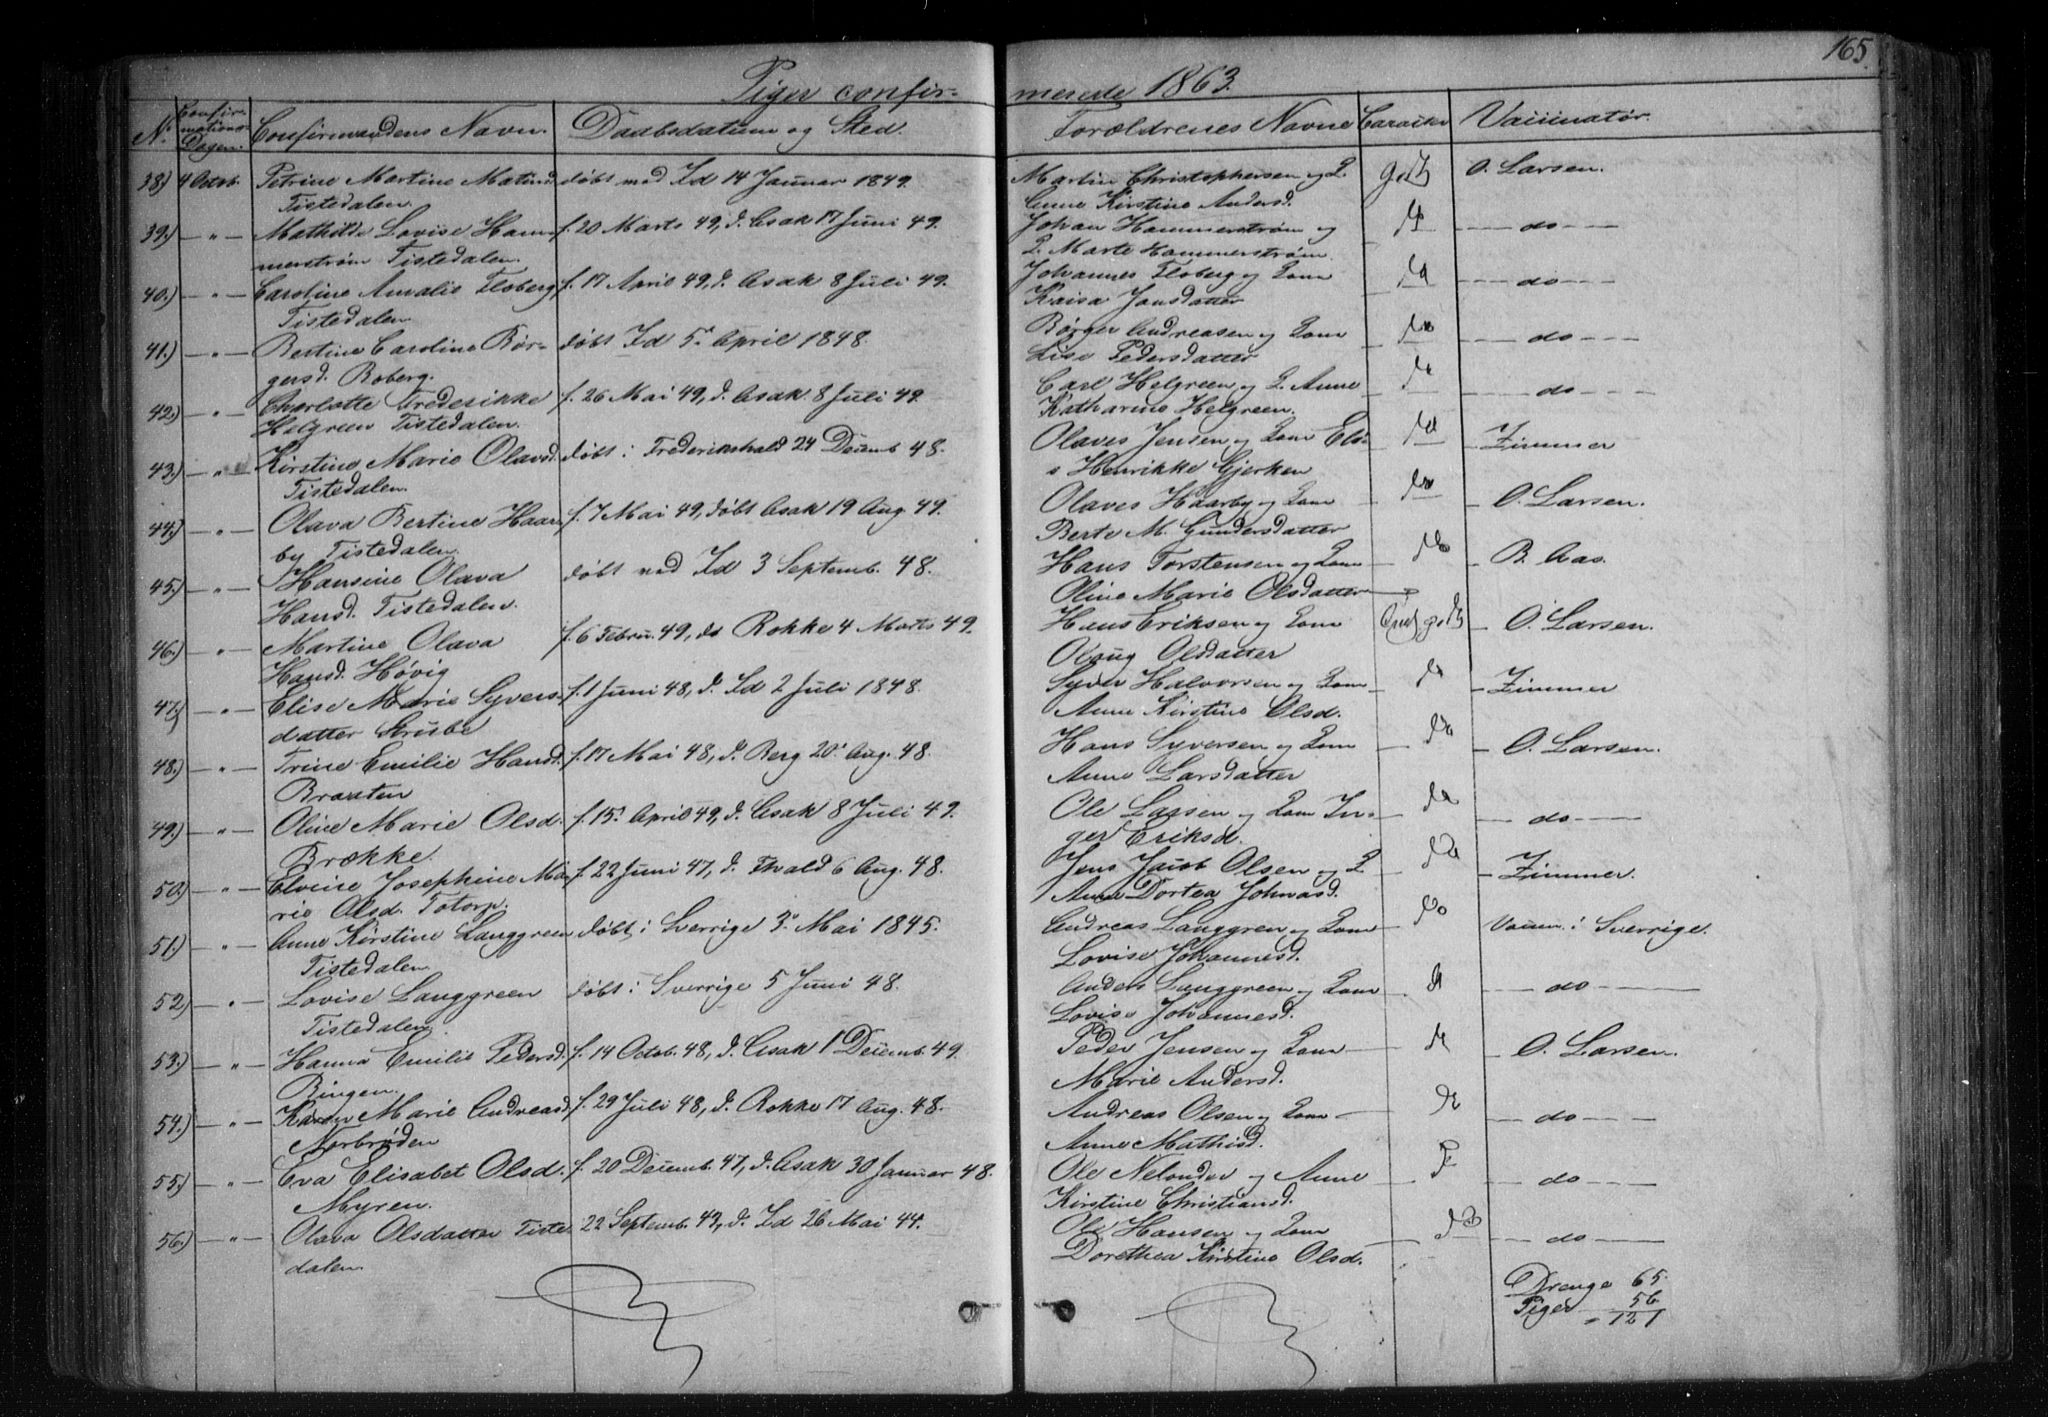 165.
Piger confir- merede 1863.
No. Confirmations-Dagen. Confirmandens Navn. Daabsdatum og Sted. Forældrenes Navne Caracter Vaccinatør.
38.) 4 Octob. Petrine Martine Matind døbt ved Id 14 Januar 1849. Martin Christophersen og Q. g.tB O. Larsen.
Tistedalen. Anne Kirstine Andersd.
39.) — " — Mathilde Lovise Ham- f. 20 Marts 49, d. Asak 17 Juni 49. Johan Hammerstrøm og do — do —
merstrøm Tistedalen. Q. Marte Hammerstrøm.
40.) — " — Caroline Amalie Floberg f. 17 April 49, d. Asak 8 Juli 49. Johannes Floberg og Qone do — do —
Tistedalen Kaisa Jansdatter
41.) — " — Bertine Caroline Bør- døbt Id 5. April 1848. Børger Andreasen og Qone do — do —
gersd. Roberg. Lise Pedersdatter
42.) — " — Charlotte Frederikke f. 26 Mai 49, d. Asak 8 Juli 49. Carl Helgreen og Q. Anne do — do —
Helgreen Tistedalen. Katharine Helgreen.
43.) — " — Kirstine Marie Olavsd. døbt i Frederikshald 24 Decemb 48. Olaves Jensen og Qone Eli- do — Zimmer
Tistedalen. s Henrikke Gjerken
44.) — " — Olava Bertine Haar- f. 7 Mai 49, døbt Asak 19 Aug. 49. Olaves Haarby og Qone do — O. Larsen.
by Tistedalen. Berte M. Gundersdatter
45.) — " — Hansine Olava døbt ved Id 3 Septemb. 48. Hans Torstensen og Qone do — B. Aas.
Hansd. Tistedalen. Oline Marie Olsdatter
46.) — " — Martine Olava f. 6 Febru. 49, do Rokke 4 Marts 49. Hans Eriksen og Qone — O. Larsen.
Hansd. Høvig Olaug Olsdatter
47.) — " — Elise Marie Syvers- f. 1 Juni 48, d. Id 2 Juli 1848. Syver Halvorsen og Qone do — Zimmer
datter Strube Anne Kirstine Olsd.
48.) — " — Trine Emilie Hansd. f. 17 Mai 48, d. Berg 20. Aug. 48. Hans Syversen og Qone do — O. Larsen.
Braaten Anne Larsdatter
49.) — " — Oline Marie Olsd. f. 15. April 49, d. Asak 8 Juli 49. Ole Larsen og Qone In- do — do —
Brække. ger Eriksd.
50.) — " — Elvine Josephine Ma- f. 22 Juni 47, d. Fhald 6 Aug. 48. Jens Jacob Olsen og Q do — Zimmer.
rie Olsd. Totorp. Anne Dortea Johnasd.
51.) — " — Anne Kirstine Langgreen døbt i Sverrige 3. Mai 1845. Andreas Langgren og Qone do Vaccin. i Sverrige.
Tistedalen Lovise Johannesd.
52.) — " — Lovise Langgreen døbt i Sverrige 5 Juni 48. Anders Langgreen og Qone do — do —
Tistedalen Lovise Johannesd.
53.) — " — Hanna Emilie Pedersd. f. 14 Octob. 48, d. Asak 1 Decemb. 49. Peder Jensen og Qone do — O. Larsen.
Bingen. Marie Andersd.
54.) — " — Karen Marie Andreasd. f. 29 Juli 48, d. Rokke 17 Aug. 48. Andreas Olsen og Qone do — do —
Norbrøden Anne Mathisd.
55.) — " — Eva Elisabet Olsd. f. 20 Decemb. 47, d. Asak 30 Januar 48. Ole Nelander og Anne — do —
Myren. Kirstine Christiansd.
56.) — " — Olava Olsdatter Tiste- 22 Septemb. 43, d. Id 26 Mai 44. Ole Hansen og Qone — do —
dalen. Dorethea Kirstine Olsd.
Drenge 65.
Piger 56
= 121